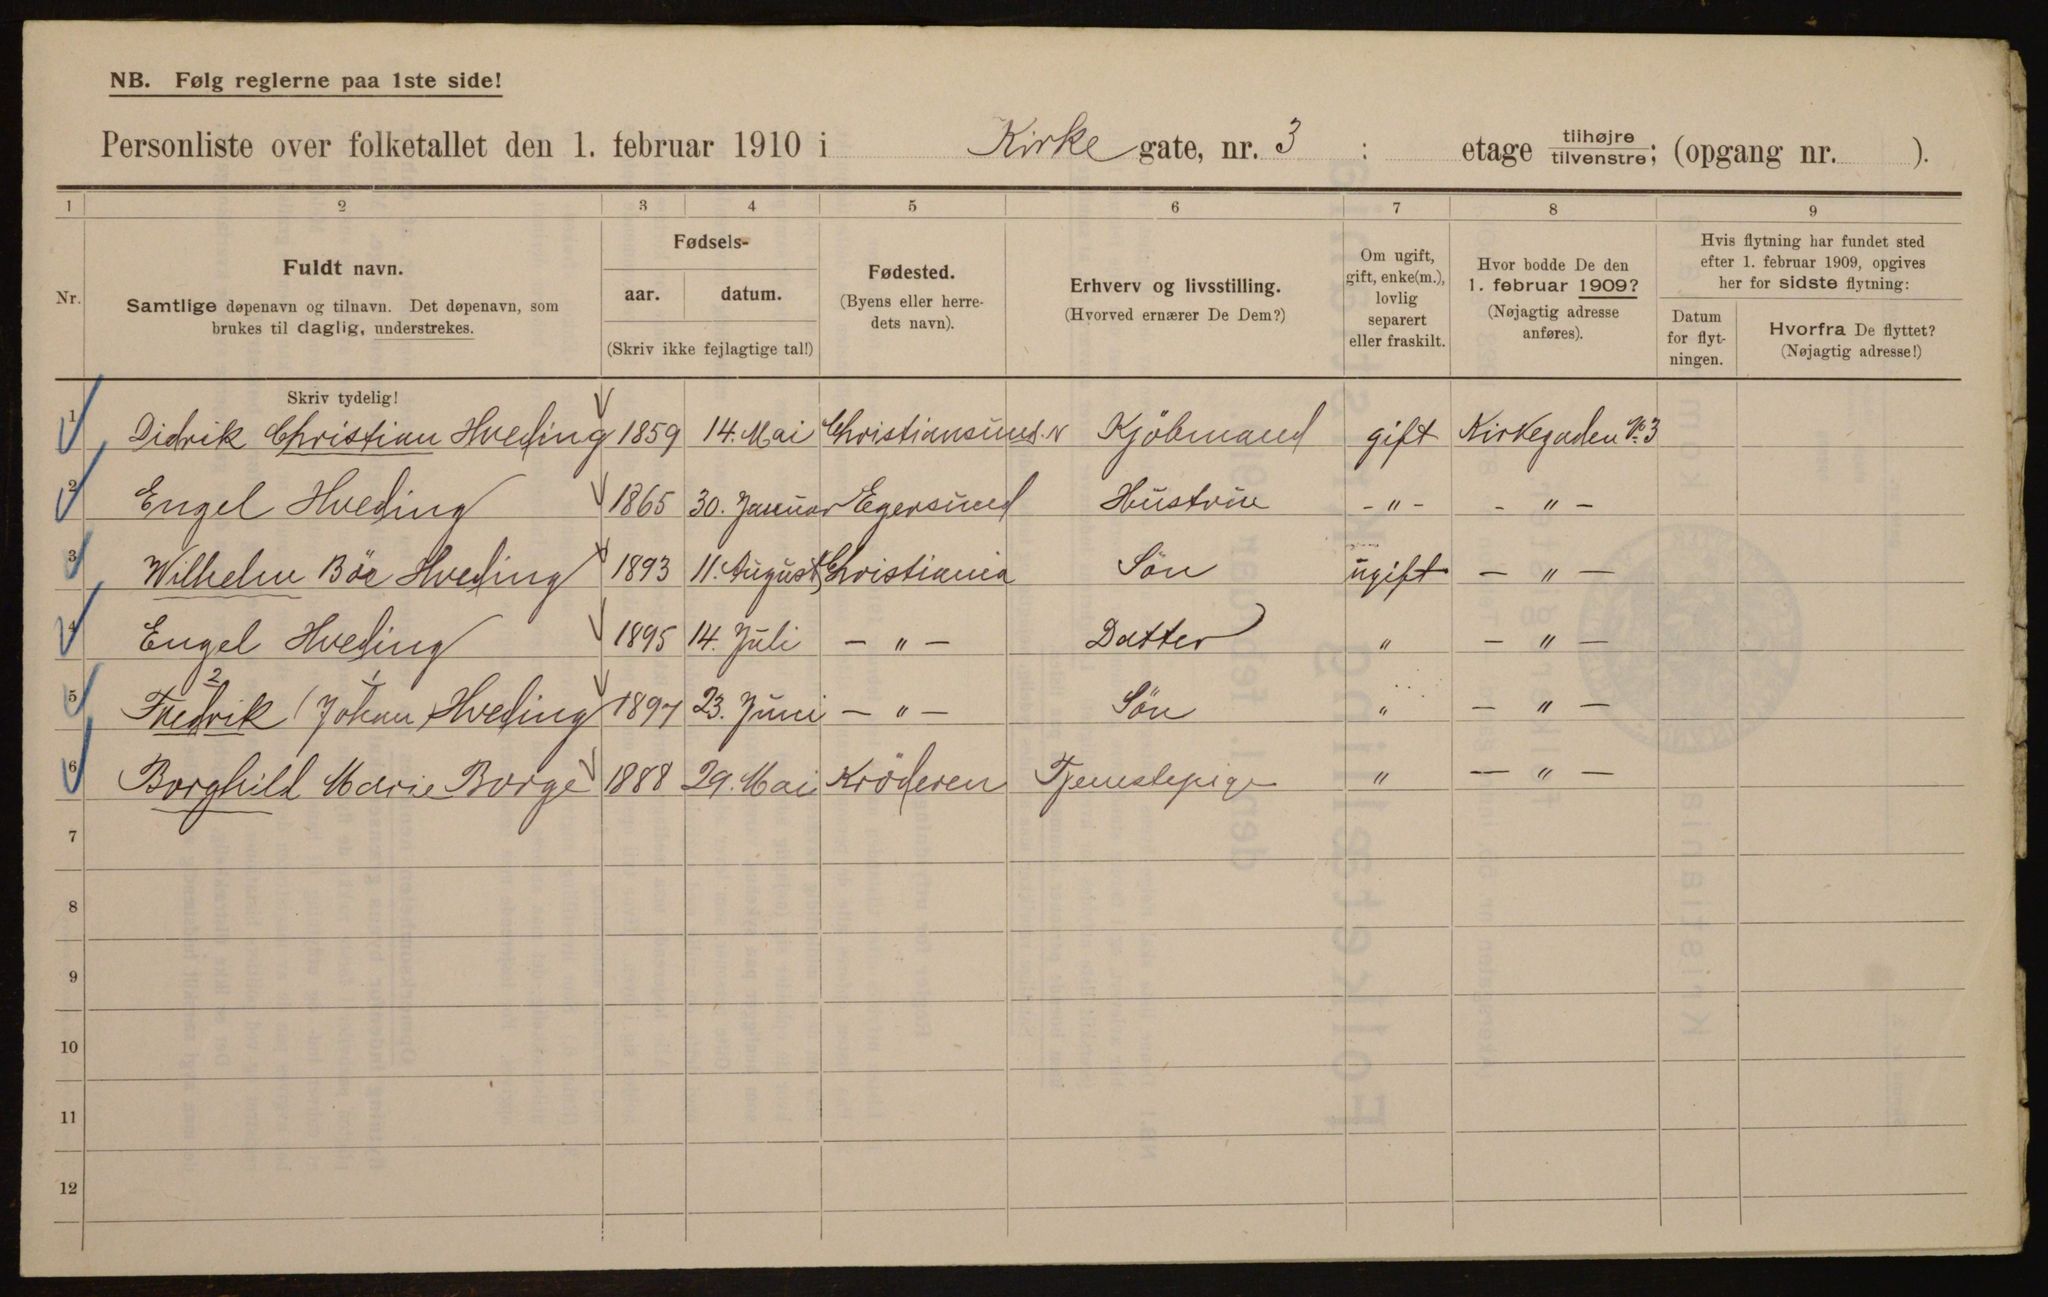 NB. Følg reglerne paa 1ste side!
Personliste over folketallet den 1. februar 1910 i Kirke gate, nr. 3 : etage tilhøjre/tilvenstre; (opgang nr. ).
1 2 3 4 5 6 7 8 9
Nr.
Fuldt navn.
Samtlige døpenavn og tilnavn. Det døpenavn, som
brukes til daglig, understrekes.
Fødsels-
aar. datum.
(Skriv ikke fejlagtige tal!)
Fødested.
(Byens eller herre-
dets navn).
Erhverv og livsstilling.
(Hvorved ernærer De Dem?)
Om ugift,
gift, enke(m.),
lovlig
separert
eller fraskilt.
Hvor bodde De den
1. februar 1909?
(Nøjagtig adresse
anføres).
Hvis flytning har fundet sted
efter 1. februar 1909, opgives
her for sidste flytning:
Datum
for flyt-
ningen.
Hvorfra De flyttet?
(Nøjagtig adresse!)
Skriv tydelig!
1 Didrik Christian Hveding 1859 14. Mai Christiansund. N Kjöbmand gift Kirkegaden No. 3
2 Engel Hveding 1865 30. Januar Egersund Hustrue - " - - " -
3 Wilhelm Böe Hveding 1893 11. August Christiania Sön ugift - " -
4 Engel Hveding 1895 14. Juli - " - Datter " - " -
2 1
5 Fredrik Johan Hveding 1897 23. Juni - " - Sön " - " -
6 Borghild Marie Borge 1888 29. Mai Kröderen Tjenestepige " - " -
7
8
9
10
11
12